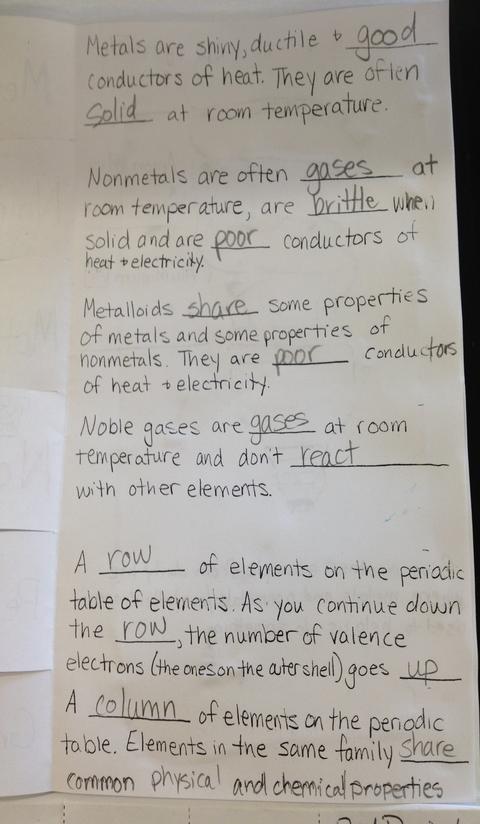 Metals are shiny, ductile + good
conductors of heat. They are often
solid at room temperature.
Nonmetals are often gases at
room temperature, are brittle when
solid and are poor conductors of
heat + electricity.
Metalloids share some properties
of metals and some properties of
nonmetals. They are poor conductors
of heat + electricity.
Noble gases are gases at room
temperature and don't react
with other elements.
A row of elements on the periodic
table of elements. As you continue down
the row, the number of valence
electrons (the ones on the outer shell) goes up
A column of elements on the periodic
table. Elements in the same family share
common physical and chemical properties